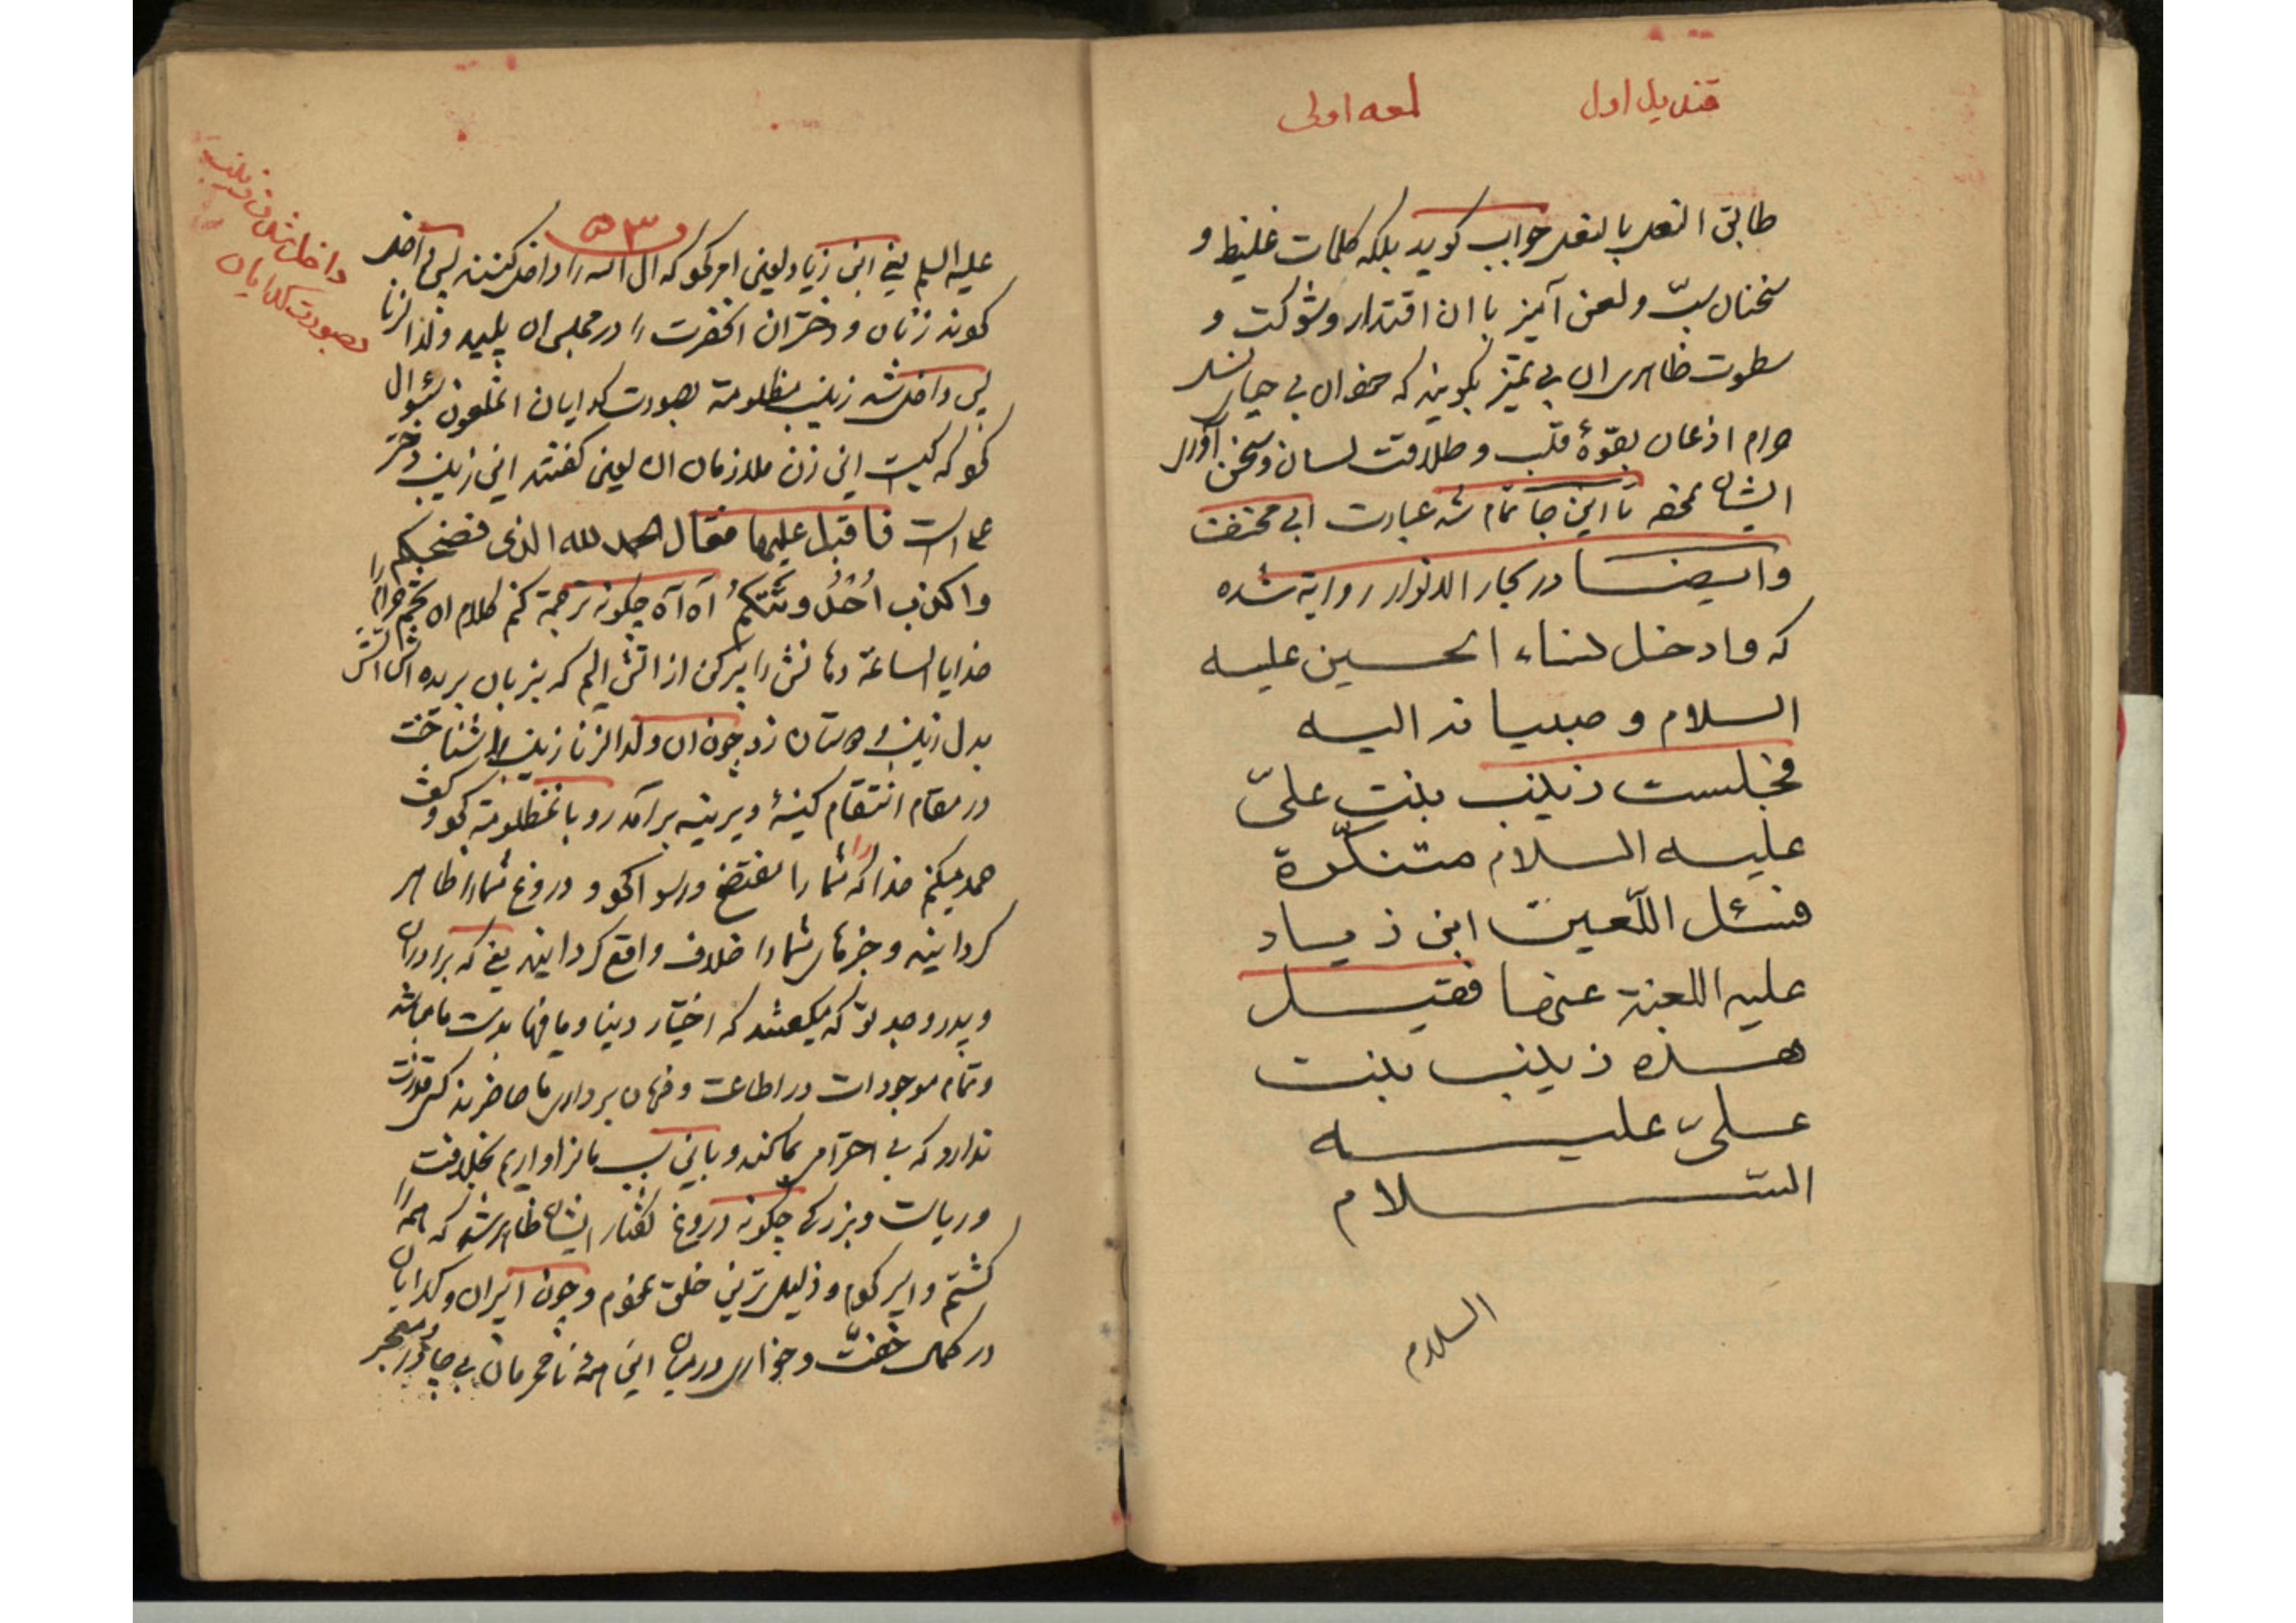 قندیل اول
لمعه اولی
طابق النعل بالنعل جواب کوید بلکه کلمات غلیظ و
سخنان سبّ و لعن آمیز با ان اقتدار و شوکت و
سطوت ظاهری ان بی تمیز بکویند که
بقوهٔ قلب و طلاقت لسان و سخن آوری
ایشان تا این جا تمام شد عبارت ابی مخنف
وایضا در بحار الانوار روایة شده
که و ادخل نساء الحسین علیه
السلام و صبیانه الیه
فجلست زینب بنت علیّ
علیه السلام متنکّرة
فسئل اللّعین ابن زیاد
علیه اللعنة عنها فقیل
هذه زینب بنت
علیّ علیه
السّلام
السلام
۵۳
داخل شدن زینب
بصورت کدایان
علیه السلم یعنی ابن زیاد لعین امر کرد که ال الله را داخل کنند پس داخل
کردند زنان و دختران انحضرت را در مجلس ان پلید ولد الزنا
پس داخل شد زینب مظلومة بصورت کدایان انملعون سئوال
کرد که کیست این زن ملازمان ان لعین کفتند این زینب دختر
علی است فاقبل علیها فقال الحمد لله الذی فضحکم
واکذب اُحْدُوثَتَکُمْ آه آه چکونه ترجمة کنم کلام ان
خدایا الساعة دهانش را پر کن از اتش الیم که بزبان بریده اش اتش
بدل زینب و دوستان زد چون ان ولد الزنا زینب را شناخت
در مقام انتقام کینهٔ دیرینه برآمد رو بانمظلومة کرد و کفت
حمد میکنم خدا را که شما را مفتضح و رسوا کرد و دروغ شما را ظاهر
کردانید و خبرهای شما را خلاف واقع کردانید یعنی که برادران
و پدر و جد تو که میکفتند که اختیار دنیا و مافیها بدست ما میباشد
و تمام موجودات در اطاعت و فرمان برداری ما حاضرند کس قدرت
ندارد که بی احترامی بما کند و باین سبب ما سزاواریم بخلافت
و ریاست و بزرکی چکونه دروغ کفتار ایشان ظاهر شد که همه را
کشتم و اسیر کردم و ذلیل ترین خلق نمودم و چون اسیران و کدایان
در کمال خفّت و خواری در میان این همه نامحرمان بی چادر و معجر